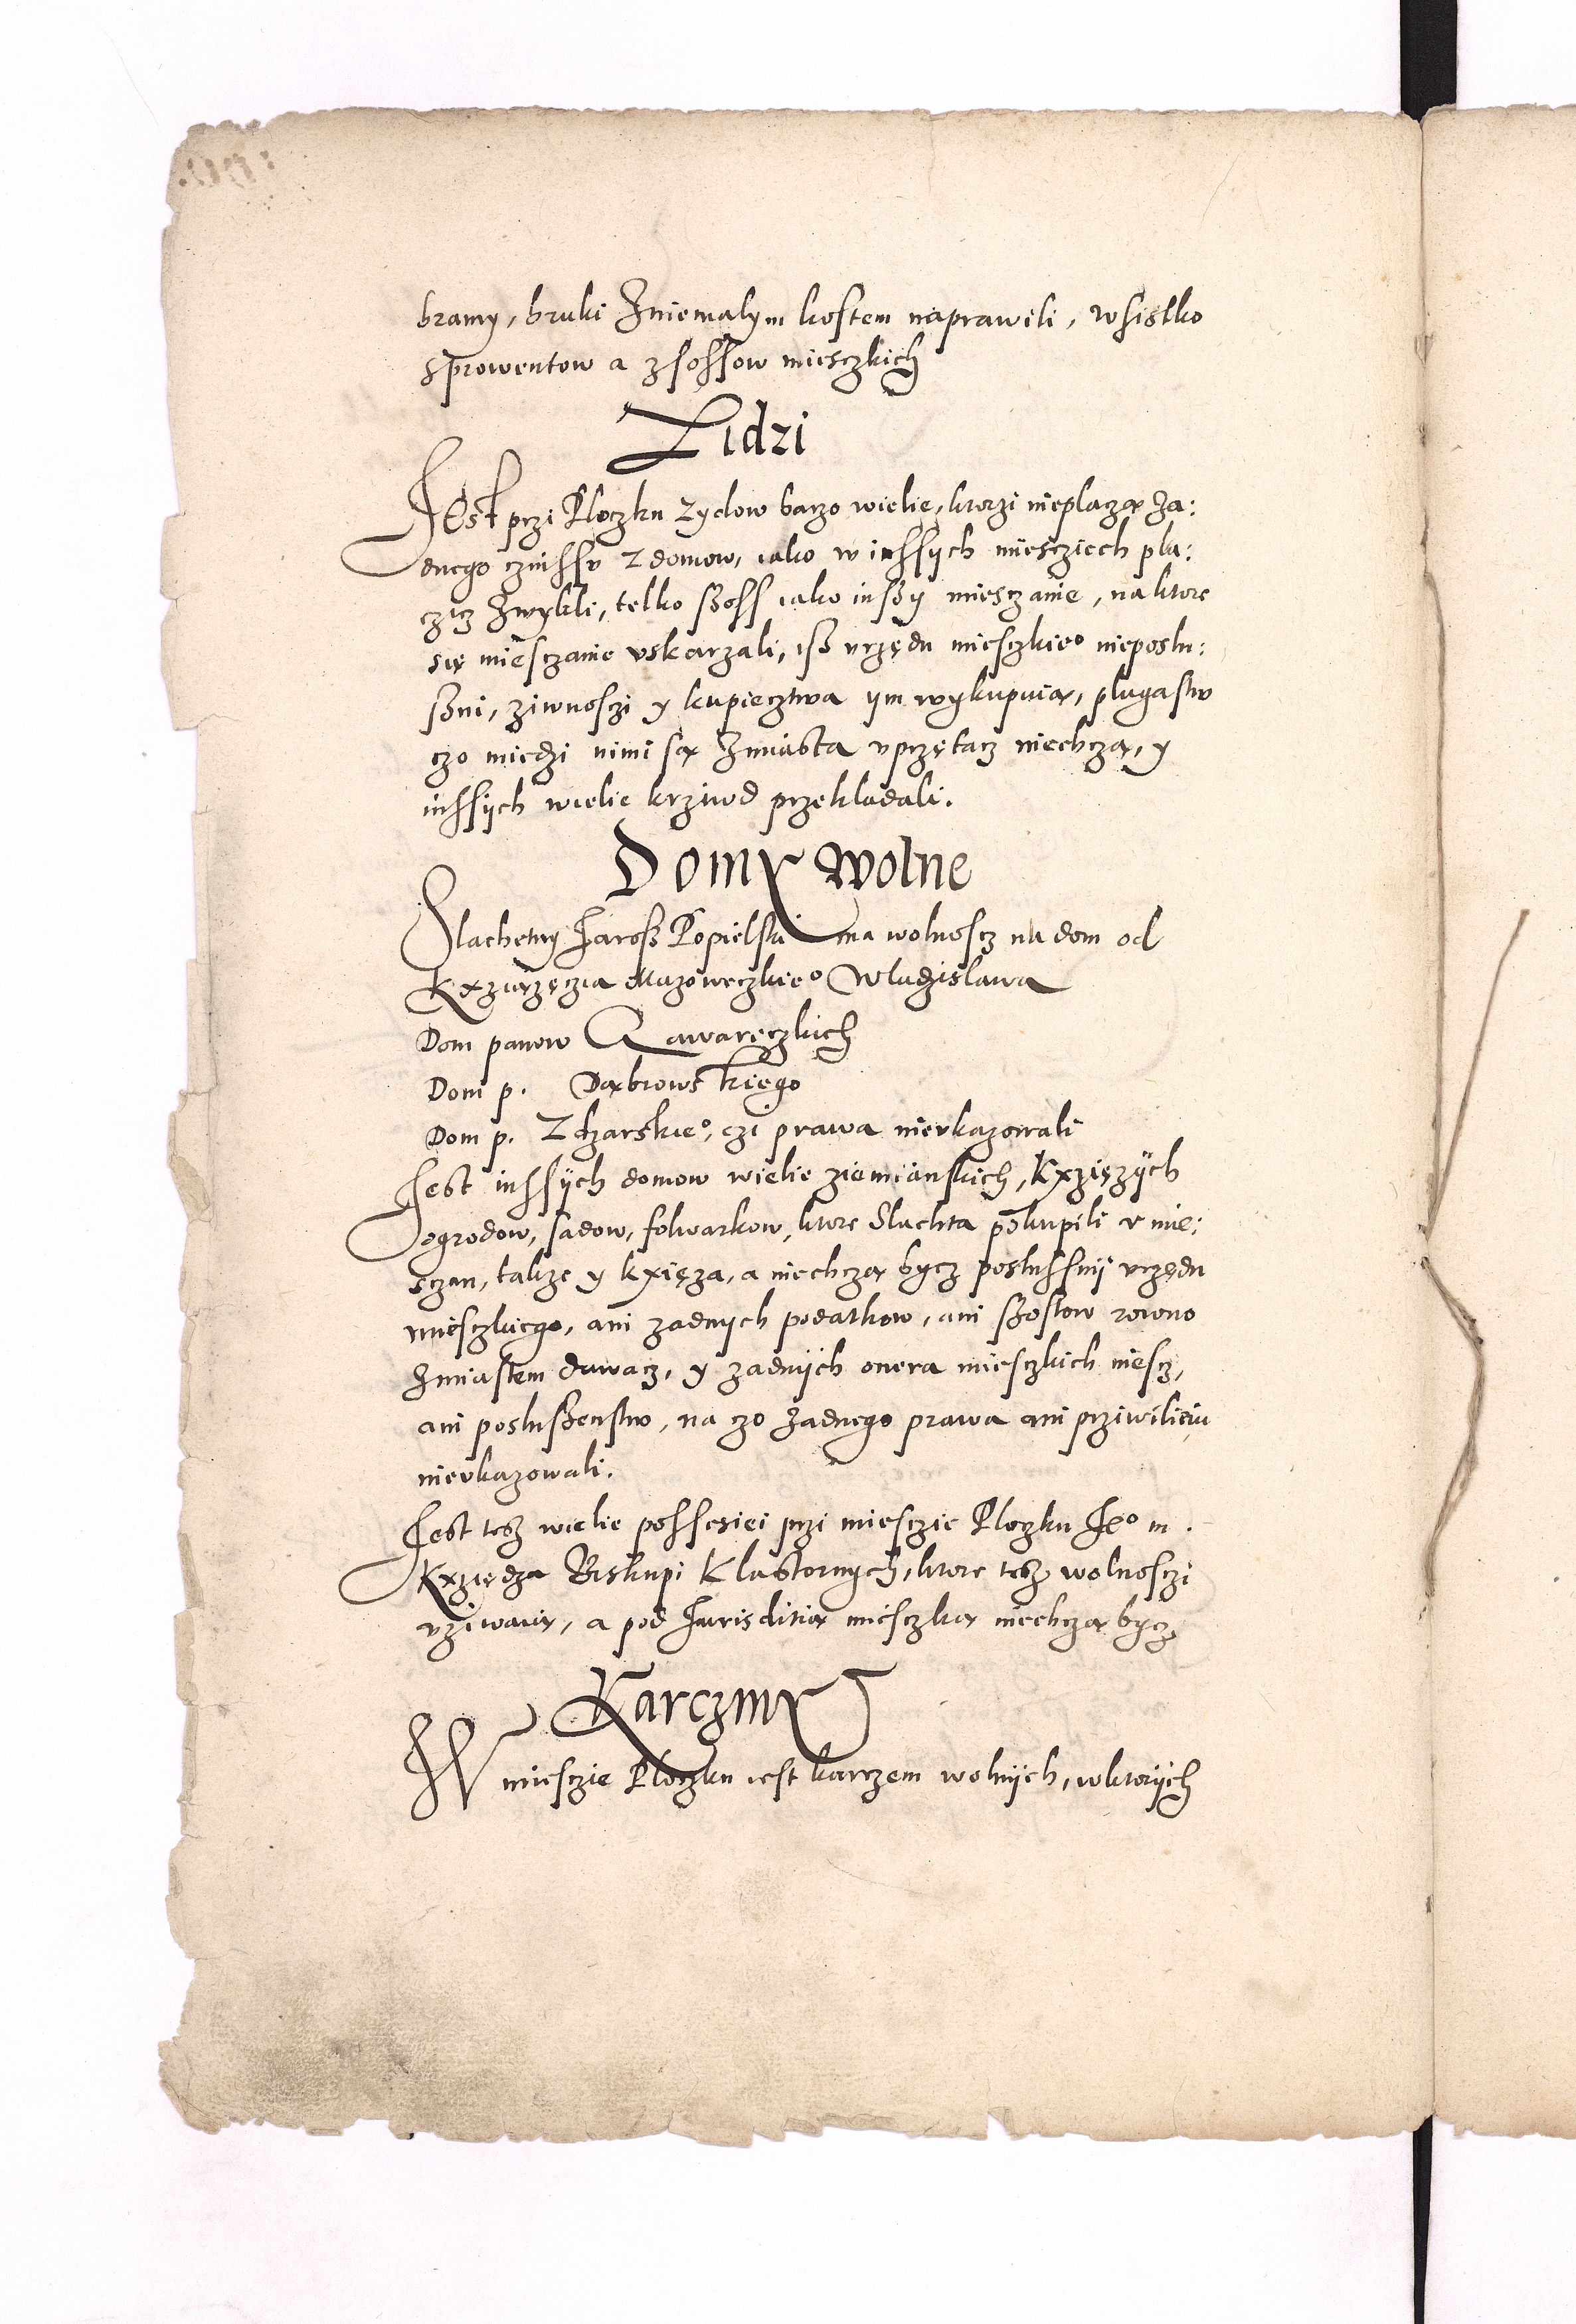 bramy, bruki Zniemalym kostem naprawili, wsistko
sprowentow a zsossow miesczkich
Zidzi
Jest przi Ploczku zydow barzo wielie, ktorzi nieplaczą Za:
dnego czinssu z domow, iako w inssych miescziech pla:
czicz Zwykli, telko szoss iako inszy miesczanie, na ktore
się miesczanie uskarzali, isz urzędu miesczkieº nieposlu:
szni, ziwnosczi y kupiecztwa ym wykupuią, plugastw
czo miedzi nimi są Zmiasta uprzętacz niechczą, y
inssych wielie krziwd przekladali.
Domy wolne
Slachetny Jarosz Popielski ma wolnoscz na dom od
Kxziązęczia Mazoweczkieº Wladzislawa
Dom panow Gawareczkich
Dom p. Dąbrowskiego
Dom p. Zdzarskieº, czi prawa nieukazowali
Jest inssych domow wielie ziemianskich, Kxzięzych
ogrodow, sadow, folwarkow, ktore Slachta pokupili u mie:
sczan, takze y kxięza, a niechczą bycz poslussni urzędu
miesczkiego, ani zadnych podatkow, ani szossow rowno
Zmiastem dawacz, y zadnych onera miesczkich niescz,
ani posluszenstw, na czo Zadnego prawa ani prziwilieiu
nieukazowali.
Jest tesz wielie possesiei przi miesczie Ploczku Jeº m.
Kxziędza Biskupi Klastornych, ktore tesz wolnosczi
uziwaią, a pod Jurisditią miesczką niechczą bycz
Karczmy
W miesczie Ploczku iest karczem wolnych, wktorych